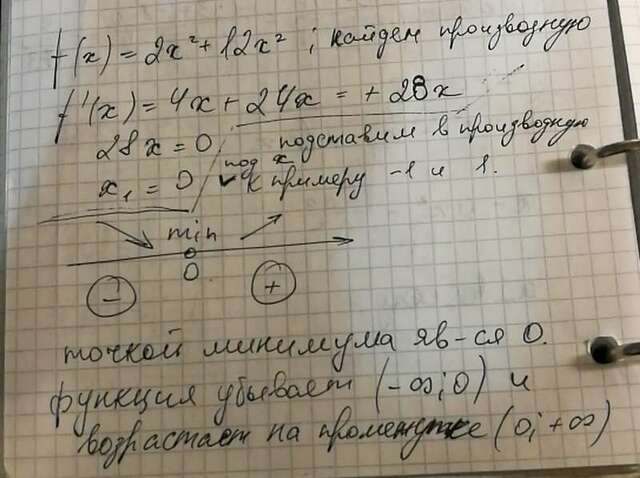 f(x) = 2x² + 12x² ; найдем производную
f'(x) = 4x + 24x = + 28x
28x = 0 подставим в производную
под x
x₁ = 0 к примеру -1 и 1.
min
0
- +
точкой минимума яв-ся 0.
функция убывает (-∞; 0) и
возрастает на промежутке (0; +∞)